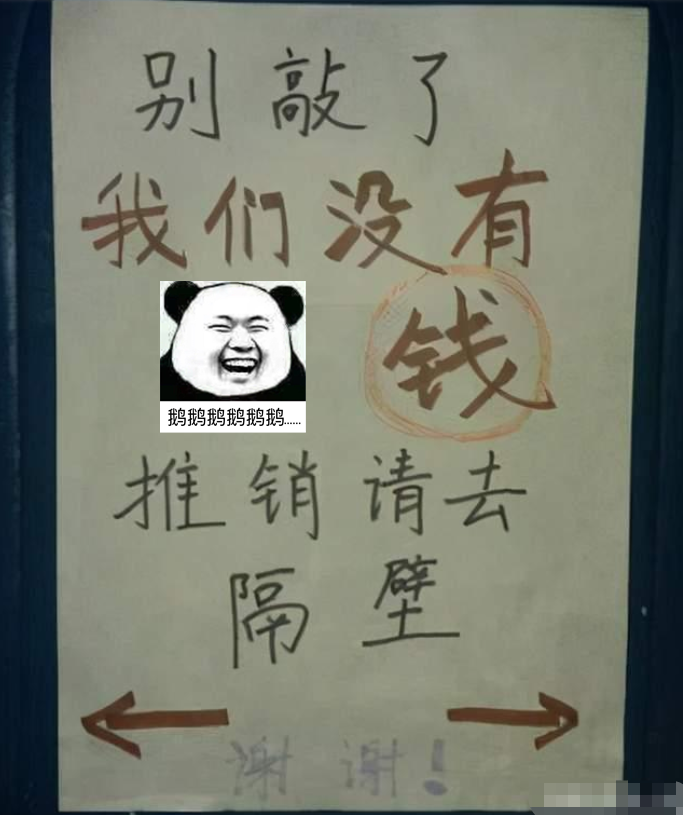 别敲了
我们没有
钱
鹅鹅鹅鹅鹅鹅......
推销请去
隔壁
谢谢!